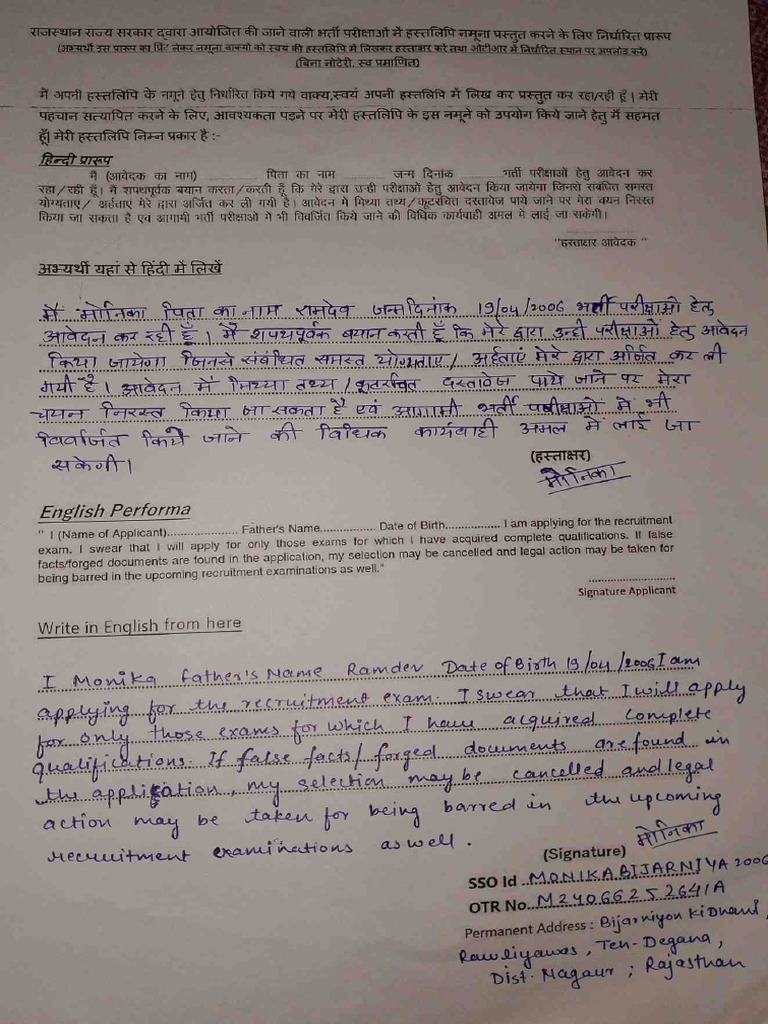 राजस्थान राज्य सरकार द्वारा आयोजित की जाने वाली भर्ती परीक्षाओं में हस्तलिपि नमूना प्रस्तुत करने के लिए निर्धारित प्रारूप
(अभ्यर्थी इस प्रारूप का प्रिंट लेकर नमूना वाक्यों को स्वयं की हस्तलिपि में लिखकर हस्ताक्षर करें तथा ओटीआर में निर्धारित स्थान पर अपलोड करें)
(बिना नोटेरी, स्व प्रमाणित)
मैं अपनी हस्तलिपि के नमूने हेतु निर्धारित किये गये वाक्य,स्वयं अपनी हस्तलिपि में लिख कर प्रस्तुत कर रहा/रही हूँ। मेरी
पहचान सत्यापित करने के लिए, आवश्यकता पड़ने पर मेरी हस्तलिपि के इस नमूने को उपयोग किये जाने हेतु मैं सहमत
हूँ। मेरी हस्तलिपि निम्न प्रकार है :-
हिन्दी प्रारूप
मैं (आवेदक का नाम) .................. पिता का नाम .............. जन्म दिनांक ............. भर्ती परीक्षाओं हेतु आवेदन कर
रहा/रही हूँ। मैं शपथपूर्वक बयान करता/करती हूँ कि मेरे द्वारा उन्ही परीक्षाओं हेतु आवेदन किया जायेगा जिनसे संबंधित समस्त
योग्यताएं/ अर्हताएं मेरे द्वारा अर्जित कर ली गयी है। आवेदन में मिथ्या तथ्य/कूटरचित दस्तावेज पाये जाने पर मेरा चयन निरस्त
किया जा सकता है एवं आगामी भर्ती परीक्षाओं में भी विवर्जित किये जाने की विधिक कार्यवाही अमल में लाई जा सकेगी।
"हस्ताक्षर आवेदक "
अभ्यर्थी यहां से हिंदी में लिखें
मैं मोनिका पिता का नाम रामदेव जन्मदिनांक 19/04/2006 भर्ती परीक्षाओं हेतु
आवेदन कर रही हूँ। मैं शपथपूर्वक बयान करती हूँ कि मेरे द्वारा उन्ही परीक्षाओं हेतु आवेदन
किया जायेगा जिनसे संबंधित समस्त योग्यताएं/ अर्हताएं मेरे द्वारा अर्जित कर ली
गयी है। आवेदन में मिथ्या तथ्य /कूटरचित दस्तावेज पाये जाने पर मेरा
चयन निरस्त किया जा सकता है एवं आगामी भर्ती परीक्षाओं में भी
विवर्जित किये जाने की विधिक कार्यवाही अमल में लाई जा
सकेगी।
(हस्ताक्षर)
मोनिका
English Performa
" I (Name of Applicant)..................... Father's Name................ Date of Birth................ I am applying for the recruitment
exam. I swear that I will apply for only those exams for which I have acquired complete qualifications. If false
facts/forged documents are found in the application, my selection may be cancelled and legal action may be taken for
being barred in the upcoming recruitment examinations as well."
Signature Applicant
Write in English from here
I Monika Father's Name Ramdev Date of Birth 19/04/2006 I am
applying for the recruitment exam. I swear that I will apply
for only those exams for which I have acquired complete
qualifications. If false facts/ forged documents are found in
the application, my selection may be cancelled and legal
action may be taken for being barred in the upcoming
recruitment examinations as well.
मोनिका
(Signature)
SSO Id MONIKABIJARNIYA2006
OTR No. M24066252641A
Permanent Address : Bijarniyon Ki Dhani,
Rawliyawas, Teh-Degana,
Dist. Nagaur ; Rajasthan